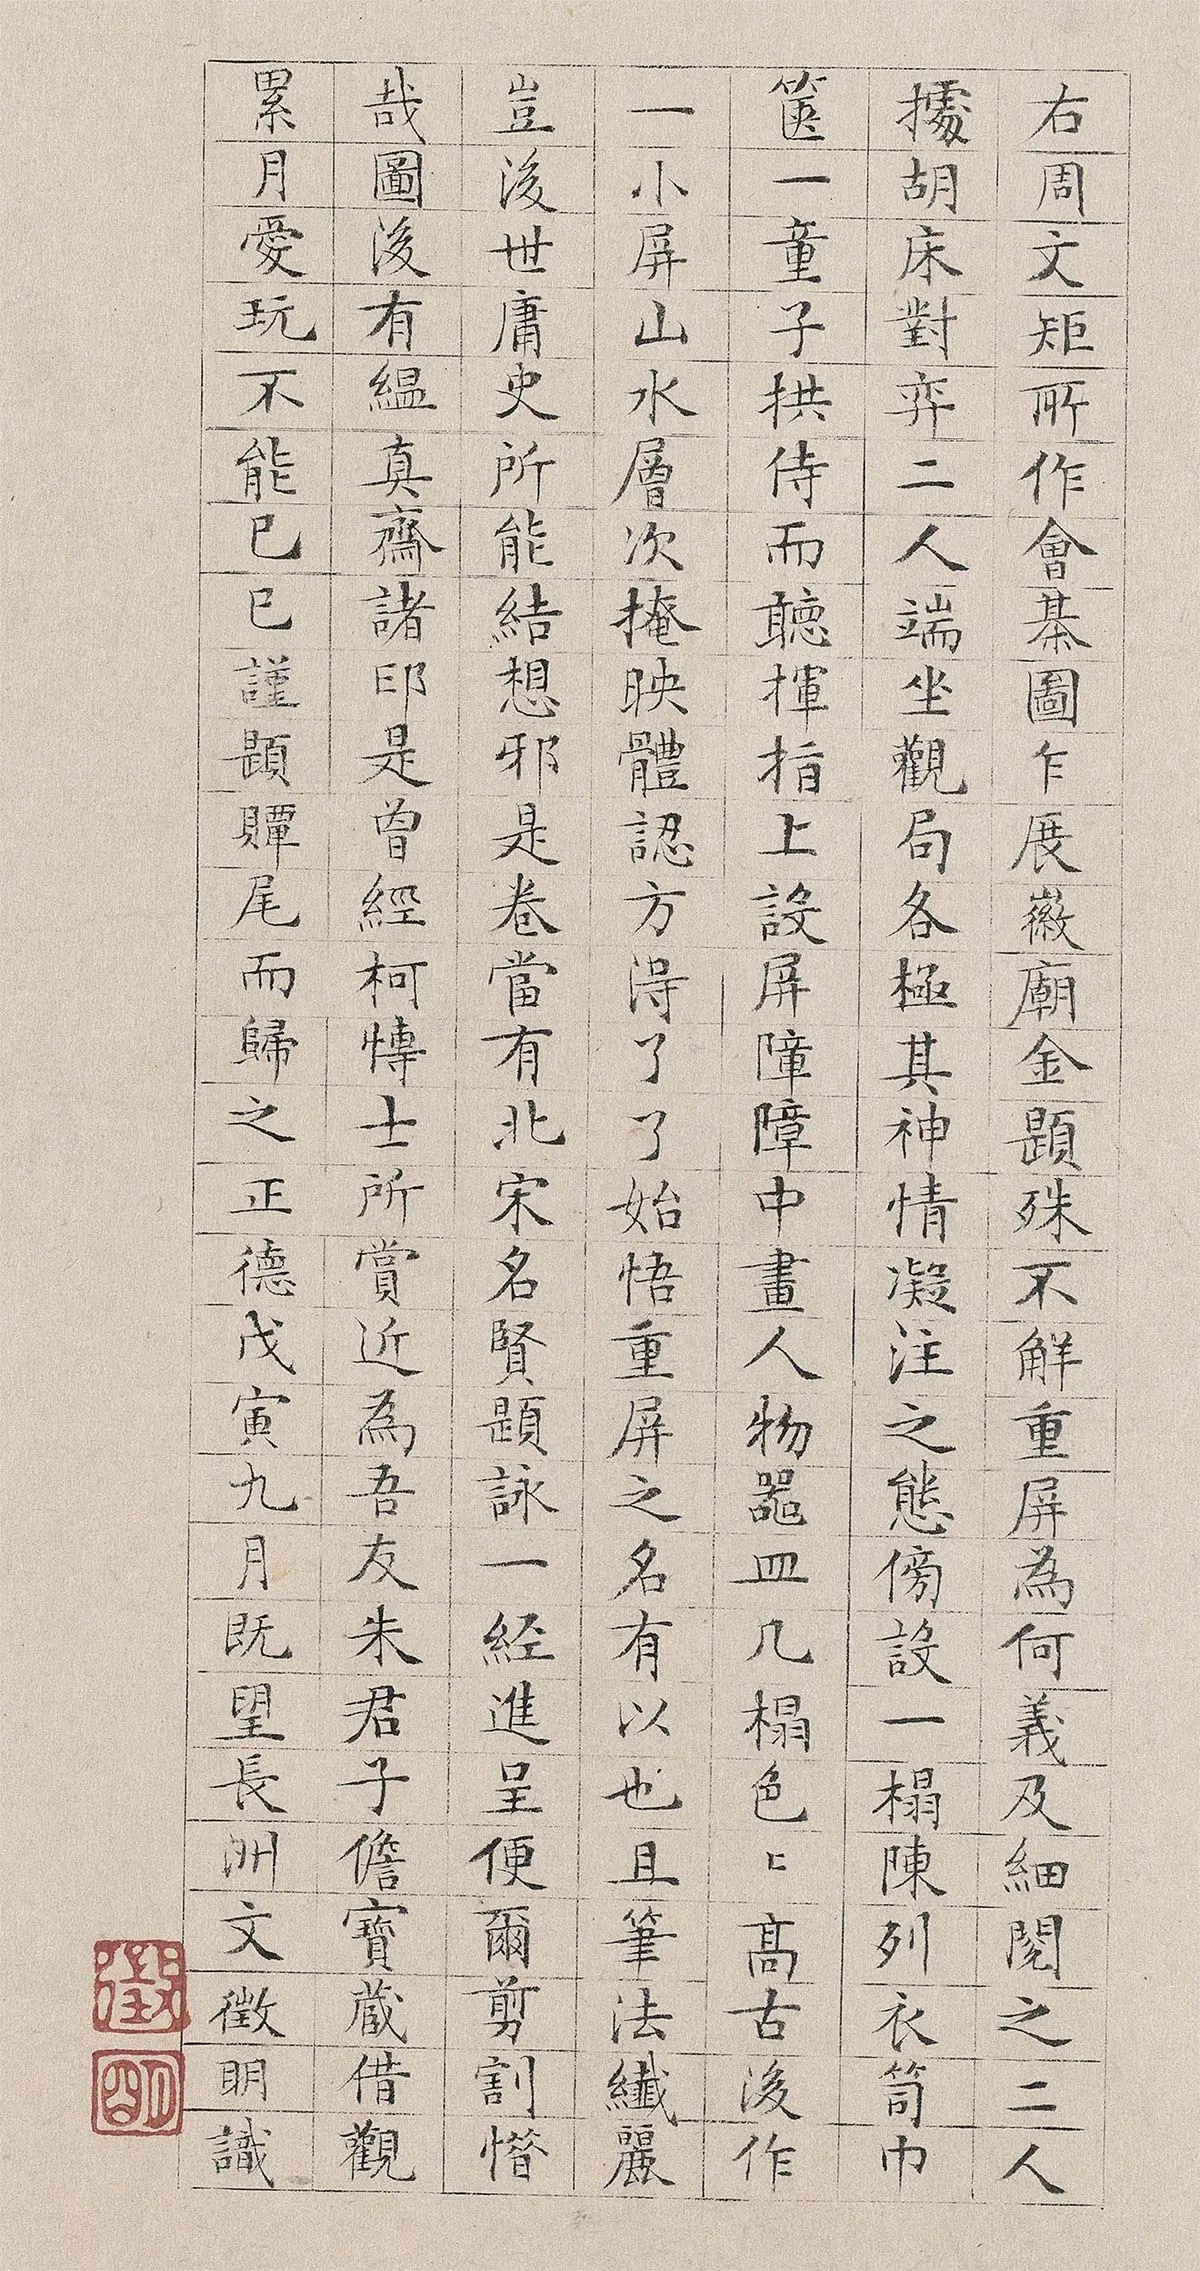 右周文矩所作會棊圖乍展徽廟金題殊不解重屏為何義及細閱之二人
據胡床對弈二人端坐觀局各極其神情凝注之態傍設一榻陳列衣笥巾
篋一童子拱侍而聽揮指上設屏障障中畫人物器皿几榻色〻高古後作
一小屏山水層次掩映體認方得了了始悟重屏之名有以也且筆法纖麗
豈後世庸史所能結想邪是卷當有北宋名賢題詠一経進呈便爾剪割惜
哉圖後有縕真齋諸印是曾經柯博士所賞近為吾友朱君子儋寶藏借觀
累月愛玩不能已已謹題贉尾而歸之正德戊寅九月既望長洲文徵明識
徵
明